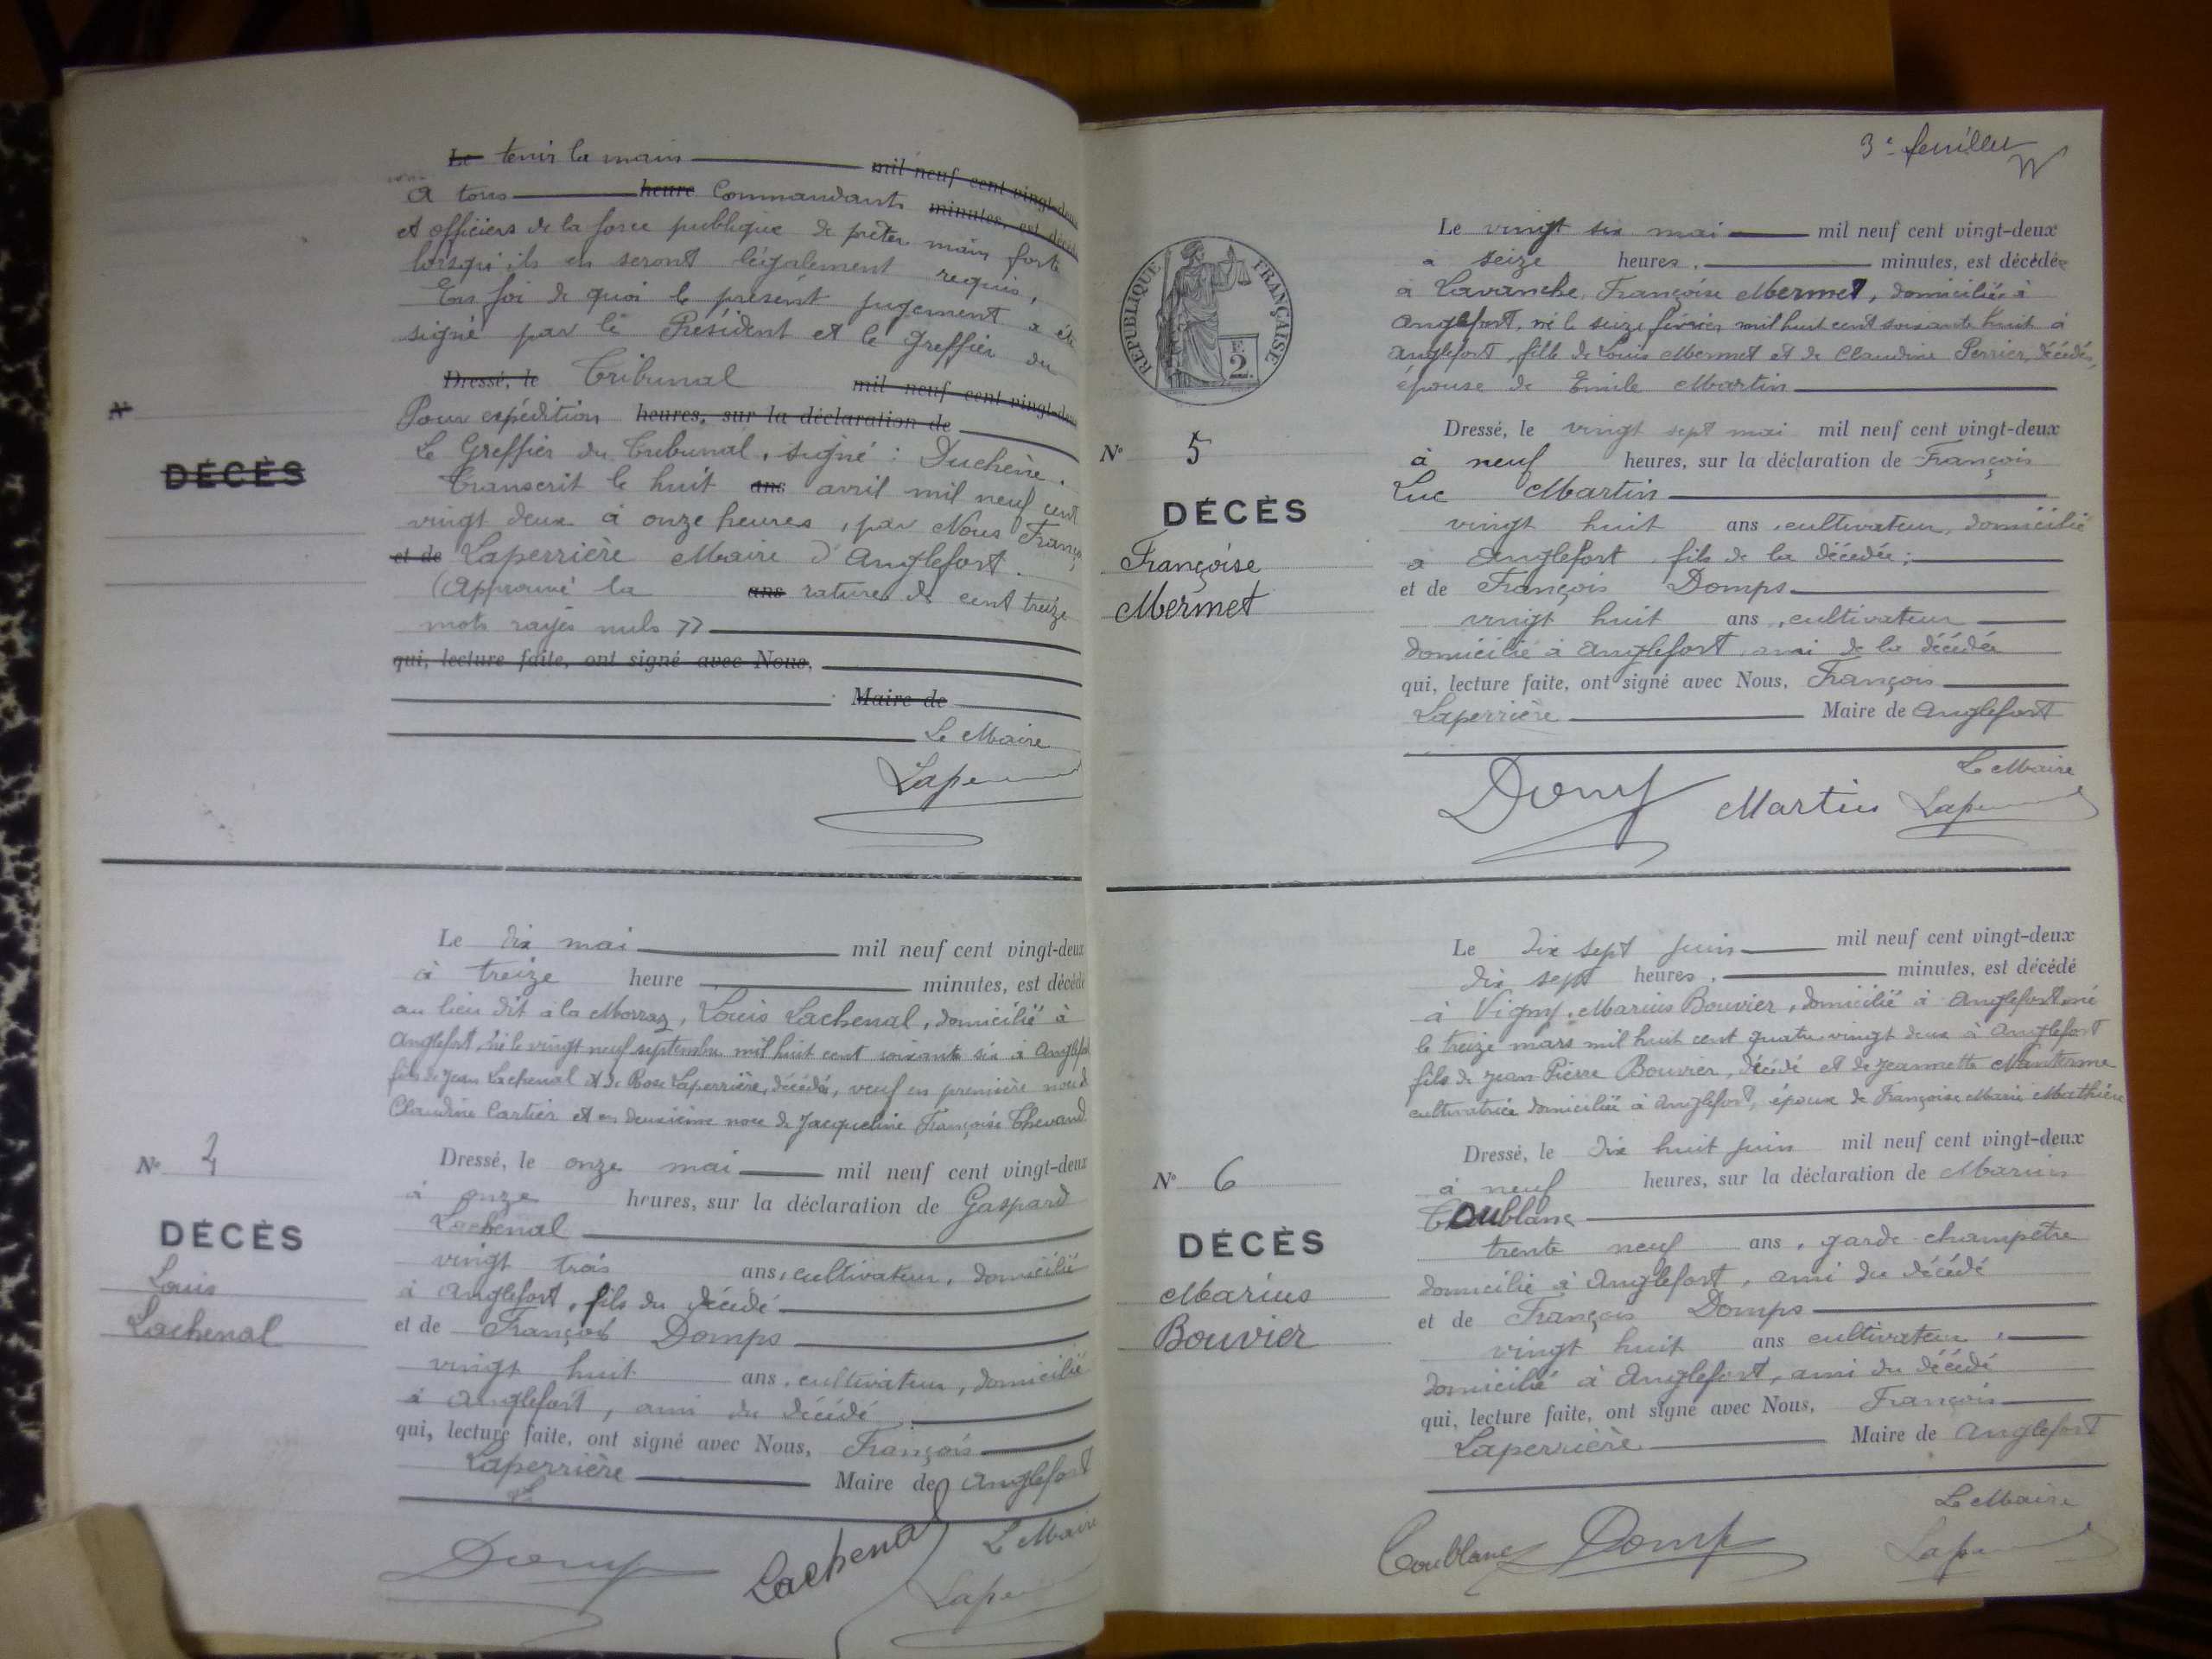 Le tenir la main mil neuf cent vingt-deux
A tous heure Commandants minutes, est décédé
et officiers de la force publique de prêter main forte
lorsqu'ils en seront légalement requis,
En foi de quoi le présent jugement a été
signé par le Président et le Greffier du
Dressé, le Tribunal mil neuf cent vingt-deux
Pour expédition heures, sur la déclaration de
Le Greffier du Tribunal, signé : Duchêne.
Transcrit le huit ans avril mil neuf cent
vingt deux à onze heures, par Nous Franç
et de Laperrière Maire d'Anglefort.
(Approuvé la ans rature de cent treize
mots rayés nuls »
qui, lecture faite, ont signé avec Nous,
Maire de
Le Maire
N°
DÉCÈS
Le dix mai mil neuf cent vingt-deux
à treize heure minutes, est décédé
au lieu dit à la Morraz, Louis Lachenal, domicilié à
Anglefort, né le vingt neuf septembre mil huit cent soixante six à Anglefort
fils de Jean Lachenal et de Rose Laperrière, décédés, veuf en première noce de
Claudine Cartier et en deuxième noce de Jacqueline Françoise Thevand
N° 4
DÉCÈS
Louis
Lachenal
Dressé, le onze mai mil neuf cent vingt-deux
à onze heures, sur la déclaration de Gaspard
Lachenal
vingt trois ans, cultivateur, domicilié
à Anglefort, fils du décédé
et de François Domps
vingt huit ans, cultivateur, domicilié
à Anglefort, ami du décédé
qui, lecture faite, ont signé avec Nous, François
Laperrière Maire de Anglefort
Lachenal Le Maire
3e feuillet
Le vingt six mai mil neuf cent vingt-deux
à seize heures, minutes, est décédée
à Lavanche, Françoise Mermet, domiciliée à
Anglefort, né le seize février mil huit cent soixante huit à
Anglefort, fille de Louis Mermet et de Claudine Perrier, décédés,
épouse de Emile Martin
RÉPUBLIQUE FRANÇAISE
2
N° 5
DÉCÈS
Françoise
Mermet
Dressé, le vingt sept mai mil neuf cent vingt-deux
à neuf heures, sur la déclaration de François
Luc Martin
vingt huit ans, cultivateur, domicilié
à Anglefort fils de la décédée;
et de François Domps
vingt huit ans, cultivateur
domicilié à Anglefort, ami de la décédée
qui, lecture faite, ont signé avec Nous, François
Laperrière Maire de Anglefort
Le Maire
Martin
Le dix sept juin mil neuf cent vingt-deux
dix sept heures, minutes, est décédé
à Vigny, Marius Bouvier, domicilié à Anglefort né
le treize mars mil huit cent quatre vingt deux à Anglefort
fils de Jean Pierre Bouvier, décédé et de Jeannette Nanterme
cultivatrice domiciliée à Anglefort, époux de Françoise Marie Mathieu
N° 6
DÉCÈS
Marius
Bouvier
Dressé, le dix huit juin mil neuf cent vingt-deux
à neuf heures, sur la déclaration de Marius
Coublanc
trente neuf ans, garde champêtre
domicilié à Anglefort, ami du décédé
et de François Domps
vingt huit ans cultivateur,
domicilié à Anglefort, ami du décédé
qui, lecture faite, ont signé avec Nous, François
Laperrière Maire de Anglefort
Le Maire
Coublanc Domps